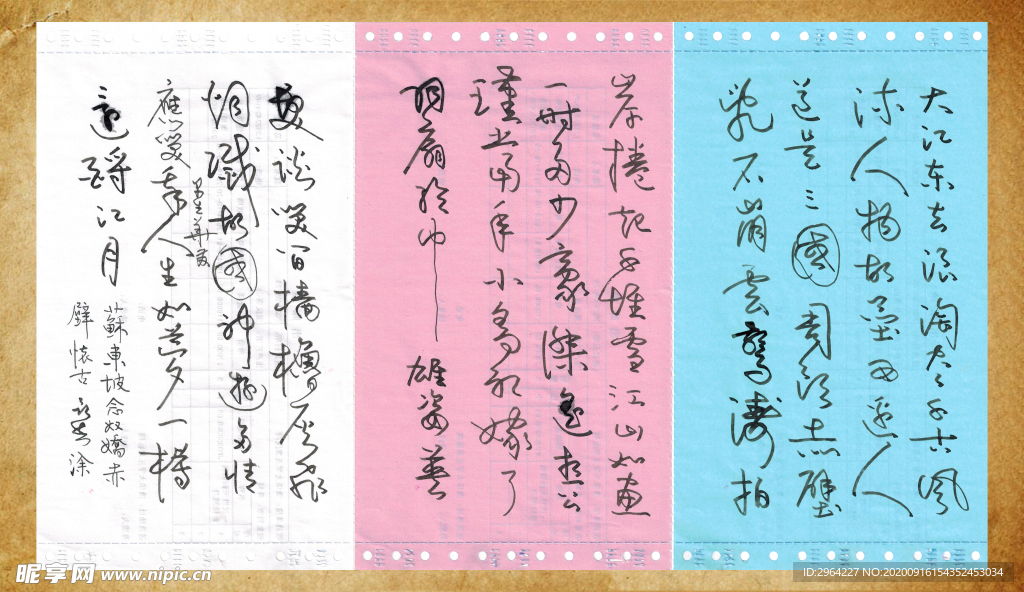 大江东去浪淘尽千古風
流人物故壘西邊人
道是三國周郎赤壁
乱石崩雲驚濤拍
岸捲起千堆雪江山如画
一时多少豪傑遥想公
瑾当年小乔初嫁了
羽扇纶巾雄姿英
發谈笑间樯櫓灰飛
烟滅故國神遊多情
早生華髮
應笑我人生如梦一樽
還酹江月
蘇東坡念奴嬌赤
壁懷古涂
昵享网 www.nipic.cn
ID:2964227 NO:20200916154352453034